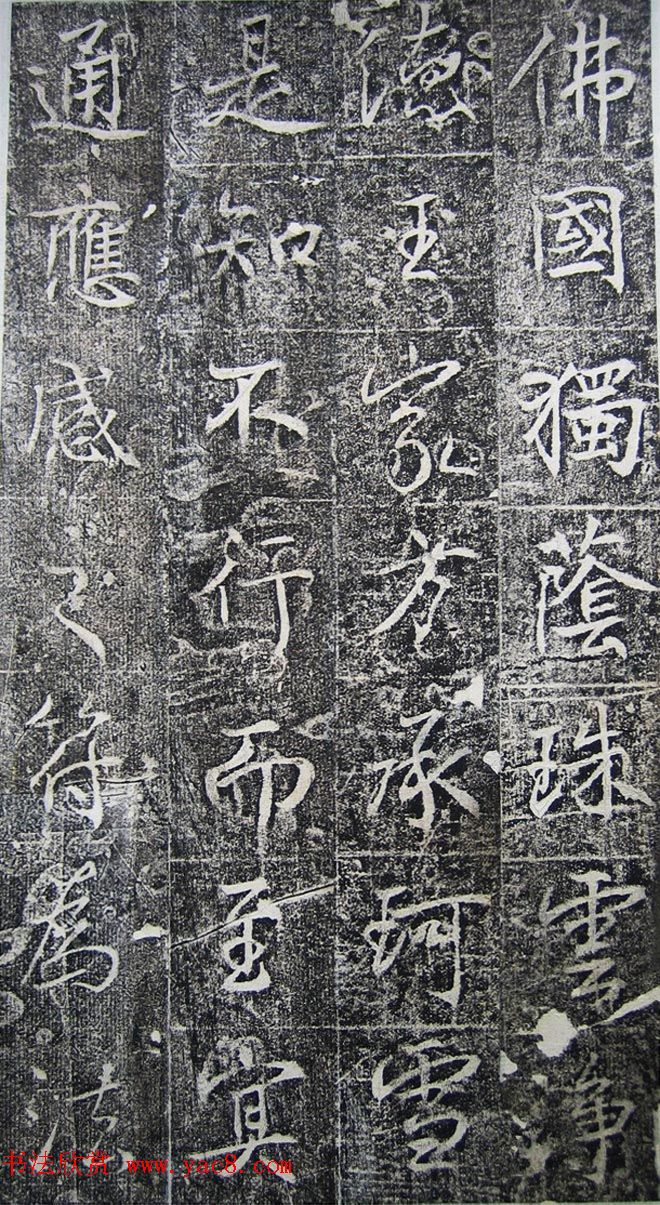 佛國獨蔭珠雲淨
德王家芳承珂雪
是知不行而至宜
通應感之符為法
书法欣赏 www.yac8.com